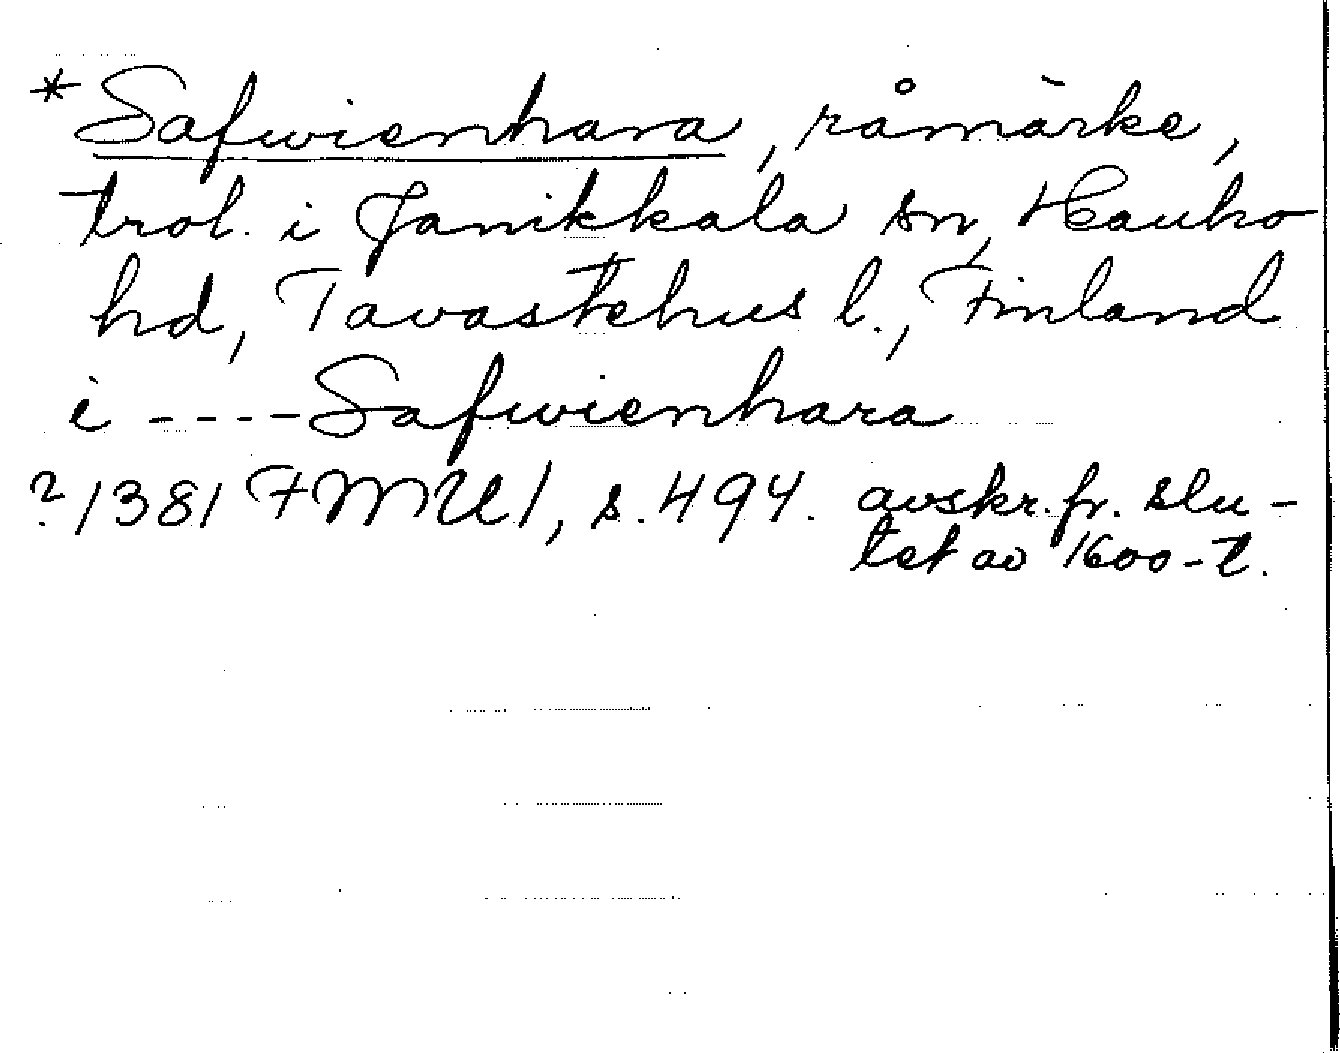 *Safwienhara, råmärke,
trol. i Janikkala sn, Hauho
hd, Tavastehus l., Finland
i ----Safwienhara
? 1381 FMU 1, s. 494. avskr. fr. slu-
tet av 1600-t.